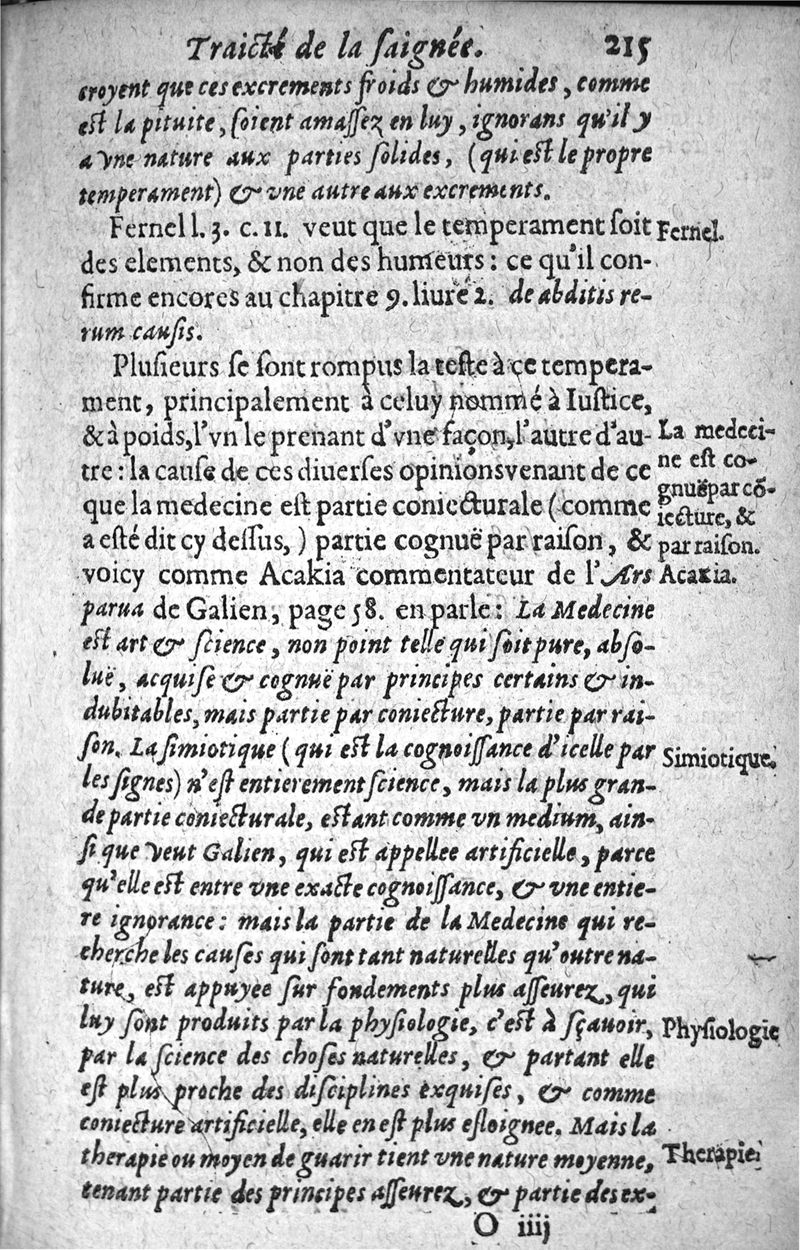 Traicté de la ſaignée. 215
croyent que ces excrements froids & humides, comme
eſt la pituite, ſoient amaſſez en luy, ignorans qu'il y
a vne nature aux parties ſolides, (qui eſt le propre
temperament) & vne autre aux excrements.
Fernel l. 3. c. 11. veut que le temperament ſoit
Fernel.
des elements, & non des humeurs: ce qu'il con-
firme encores au chapitre 9. liure 2. de abditis re-
rum cauſis.
Pluſieurs ſe ſont rompus la teſte à ce tempera-
ment, principalement à celuy nommé à Iuſtice,
& à poids, l'vn le prenant d'vne façon, l'autre d'au-
La medeci-
tre: la cauſe de ces diuerſes opinions venant de ce
ne eſt co-
que la medecine eſt partie coniecturale (comme
gnuë par cõ-
iecture, &
a eſté dit cy deſſus,) partie cognuë par raiſon, &
par raiſon.
voicy comme Acakia commentateur de l'Ars
Acakia.
parua de Galien, page 58. en parle: La Medecine
eſt art & ſcience, non point telle qui ſoit pure, abſo-
luë, acquiſe & cognuë par principes certains & in-
dubitables, mais partie par coniecture, partie par rai-
ſon. La ſimiotique (qui eſt la cognoiſſance d'icelle par
Simiotique.
les ſignes) n'eſt entierement ſcience, mais la plus gran-
de partie coniecturale, eſtant comme vn medium, ain-
ſi que veut Galien, qui eſt appellee artificielle, parce
qu'elle eſt entre vne exacte cognoiſſance, & vne entie-
re ignorance: mais la partie de la Medecine qui re-
cherche les cauſes qui ſont tant naturelles qu'outre na-
ture, eſt appuyee ſur fondements plus aſſeurez, qui
luy ſont produits par la phyſiologie, c'eſt à ſçauoir,
Phyſiologie
par la ſcience des choſes naturelles, & partant elle
eſt plus proche des diſciplines exquiſes, & comme
coniecture artificielle, elle en eſt plus eſloignee. Mais la
therapie ou moyen de guarir tient vne nature moyenne,
Therapie.
tenant partie des principes aſſeurez, & partie des ex-
O iiij